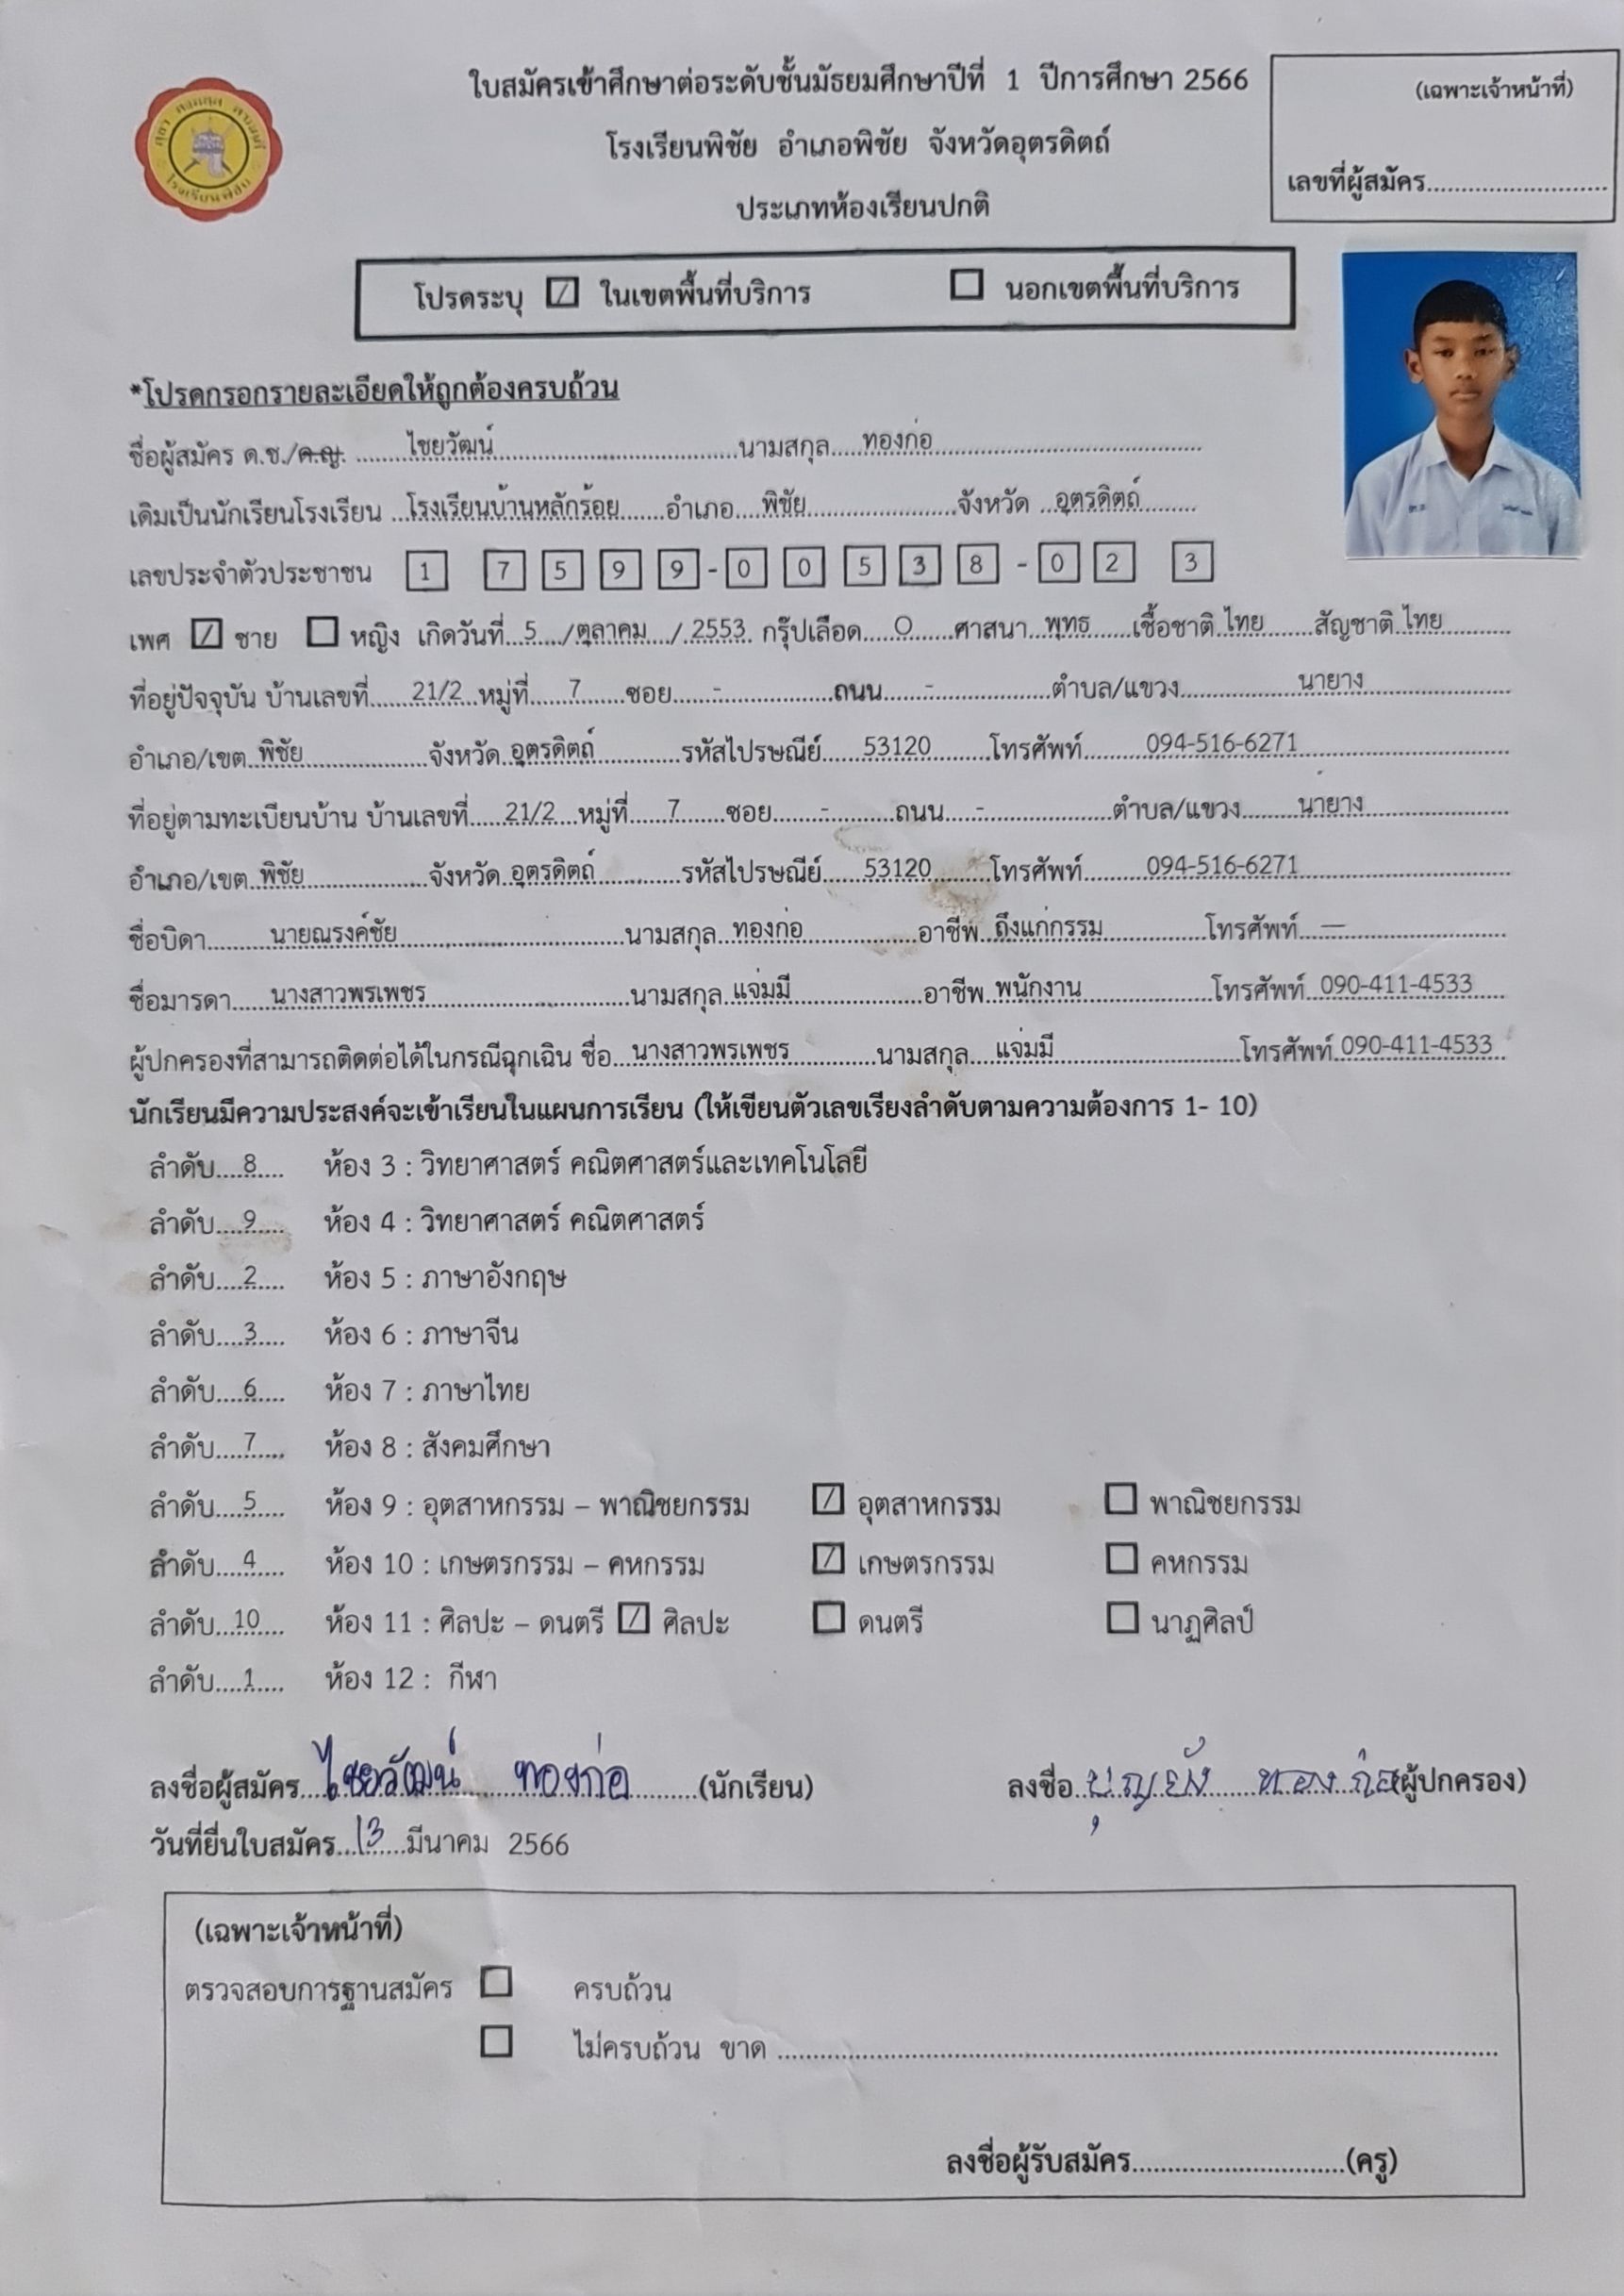 ใบสมัครเข้าศึกษาต่อระดับชั้นมัธยมศึกษาปีที่ 1 ปีการศึกษา 2566
(เฉพาะเจ้าหน้าที่)
โรงเรียนพิชัย อำเภอพิชัย จังหวัดอุตรดิตถ์
เลขที่ผู้สมัคร..............................
ประเภทห้องเรียนปกติ
โรงเรียนพิชัย
โปรดระบุ ☑ ในเขตพื้นที่บริการ ☐ นอกเขตพื้นที่บริการ
*โปรดกรอกรายละเอียดให้ถูกต้องครบถ้วน
ชื่อผู้สมัคร ด.ช./ด.ญ. ........ไชยวัฒน์........นามสกุล....ทองก่อ........
เดิมเป็นนักเรียนโรงเรียน ..โรงเรียนบ้านหลักร้อย......อำเภอ....พิชัย........จังหวัด ..อุตรดิตถ์........
เลขประจำตัวประชาชน 1 7 5 9 9 - 0 0 5 3 8 - 0 2 3
เพศ ☑ ชาย ☐ หญิง เกิดวันที่..5..../ตุลาคม../..2553. กรุ๊ปเลือด.....O......ศาสนา..พุทธ......เชื้อชาติ.ไทย.......สัญชาติ.ไทย........
ที่อยู่ปัจจุบัน บ้านเลขที่......21/2..หมู่ที่.....7......ซอย.....-........ถนน......-........ตำบล/แขวง........นายาง........
อำเภอ/เขต..พิชัย........จังหวัด..อุตรดิตถ์........รหัสไปรษณีย์......53120........โทรศัพท์........094-516-6271........
ที่อยู่ตามทะเบียนบ้าน บ้านเลขที่.....21/2...หมู่ที่.....7......ซอย.......-........ถนน.....-........ตำบล/แขวง........นายาง........
อำเภอ/เขต..พิชัย........จังหวัด..อุตรดิตถ์........รหัสไปรษณีย์......53120........โทรศัพท์........094-516-6271........
ชื่อบิดา........นายณรงค์ชัย........นามสกุล..ทองก่อ........อาชีพ..ถึงแก่กรรม........โทรศัพท์...—........
ชื่อมารดา.....นางสาวพรเพชร........นามสกุล.แจ่มมี........อาชีพ..พนักงาน........โทรศัพท์..090-411-4533.....
ผู้ปกครองที่สามารถติดต่อได้ในกรณีฉุกเฉิน ชื่อ...นางสาวพรเพชร........นามสกุล....แจ่มมี........โทรศัพท์.090-411-4533..
นักเรียนมีความประสงค์จะเข้าเรียนในแผนการเรียน (ให้เขียนตัวเลขเรียงลำดับตามความต้องการ 1- 10)
ลำดับ....8.... ห้อง 3 : วิทยาศาสตร์ คณิตศาสตร์และเทคโนโลยี
ลำดับ....9.... ห้อง 4 : วิทยาศาสตร์ คณิตศาสตร์
ลำดับ....2.... ห้อง 5 : ภาษาอังกฤษ
ลำดับ....3.... ห้อง 6 : ภาษาจีน
ลำดับ....6.... ห้อง 7 : ภาษาไทย
ลำดับ....7.... ห้อง 8 : สังคมศึกษา
ลำดับ....5.... ห้อง 9 : อุตสาหกรรม – พาณิชยกรรม ☑ อุตสาหกรรม ☐ พาณิชยกรรม
ลำดับ....4.... ห้อง 10 : เกษตรกรรม – คหกรรม ☑ เกษตรกรรม ☐ คหกรรม
ลำดับ...10.... ห้อง 11 : ศิลปะ – ดนตรี ☑ ศิลปะ ☐ ดนตรี ☐ นาฏศิลป์
ลำดับ....1.... ห้อง 12 : กีฬา
ลงชื่อผู้สมัคร...ไชยวัฒน์ ทองก่อ..........(นักเรียน) ลงชื่อ..บุญยัง ทองก่อ(ผู้ปกครอง)
วันที่ยื่นใบสมัคร...13......มีนาคม 2566
(เฉพาะเจ้าหน้าที่)
ตรวจสอบการฐานสมัคร ☐ ครบถ้วน
☐ ไม่ครบถ้วน ขาด ........................................
ลงชื่อผู้รับสมัคร..............................(ครู)